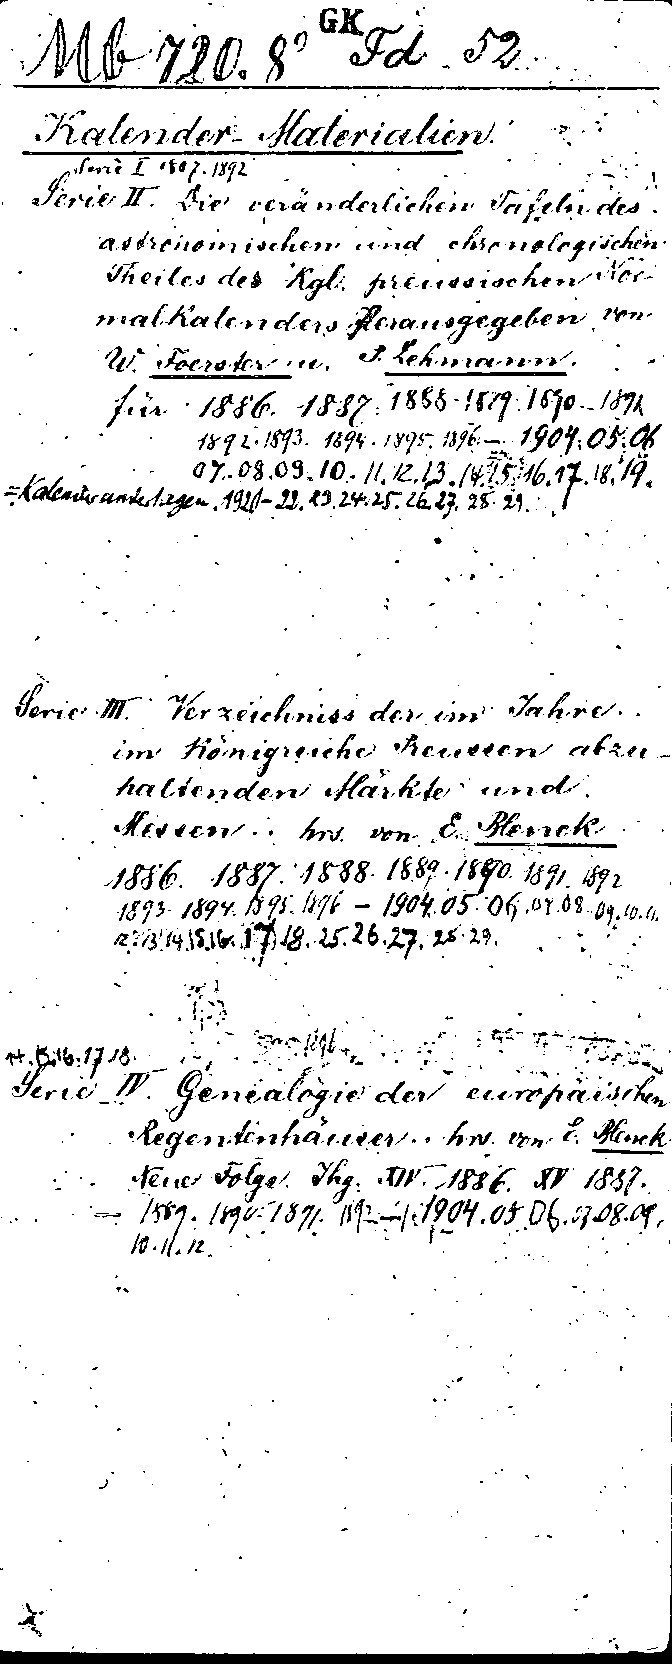 GK
Mb 720. 8° Fd 52
Kalender-Materialien.
Serie I 1892
Serie II. Die veränderlichen Tafeln des
astronomischen und chronologischen
Theiles des Kgl. preussischen Nor-
malkalenders Herausgegeben von
W. Foerster u. P. Lehmann.
für 1886. 1887. 1888. 1889. 1890. 1891
1892. 1893. 1894. 1895. 1896 — 1904. 05. 06
07. 08. 09. 10. 11. 12. 13. 14. 15. 16. 17. 18. 19.
= Kalenderunterlagen. 22. 23. 24. 25. 26. 27. 28. 29.
Serie III. Verzeichniss der im Jahre ..
im Königreiche Preussen abzu-
haltenden Märkte und
Messen .. hrs. von E. Blenck
1886. 1887. 1888. 1889. 1890. 1891. 1892
1893. 1894. 1895. 1896 — 1904. 05. 06. 07. 08. 09. 10. 11.
12. 13. 14. 15. 16. 17. 18. 25. 26. 27. 28. 29.
1896
14. 15. 16. 17. 18.
Serie IV. Genealogie der europäischen
Regentenhäuser .. hrs. von E. Blenck
Neue Folge. Jhg. XIV. 1886. XV 1887.
— 1889. 1890. 1891. 1892 — 1904. 05. 06. 07. 08. 09.
10. 11. 12.